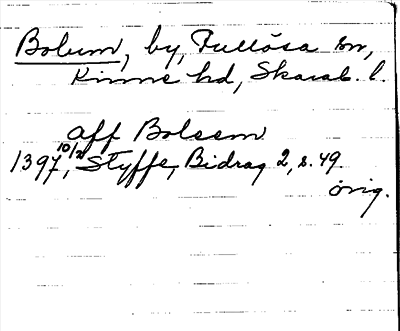 Bolum, by, Fullösa sn,
Kinne hd, Skarab. l.
aff Bolsem
1397 10/2, Styffe, Bidrag 2, s. 49.
orig.